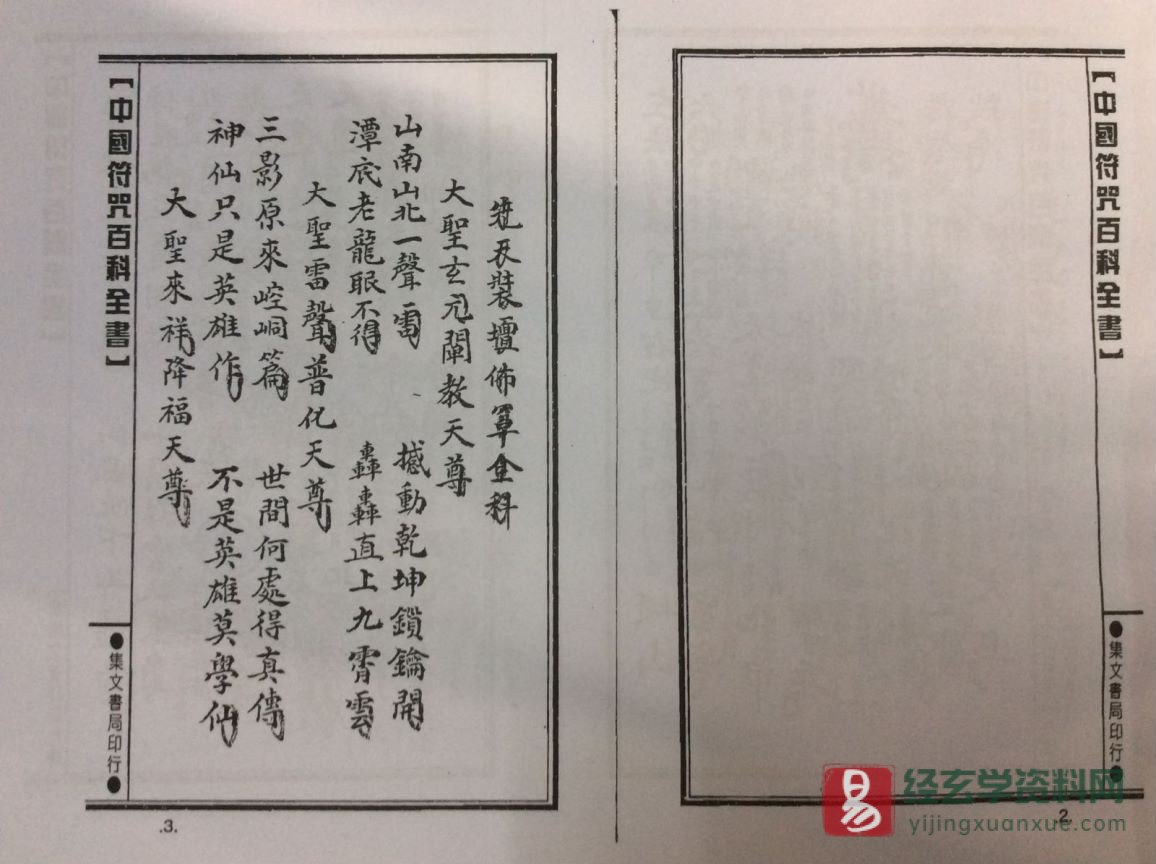 【中國符咒百科全書】
●集文書局印行●
2.
裝壇佈罩全科
大聖玄元闡教天尊
山南山北一聲雷 撼動乾坤鎖鑰開
潭底老龍眠不得 轟轟直上九霄雲
大聖雷聲普化天尊
三影原來崆峒篇 世間何處得真傳
神仙只是英雄作 不是英雄莫學仙
大聖來祥降福天尊
【中國符咒百科全書】
●集文書局印行●
.3.
易
经玄学资料网
yijingxuanxue.com